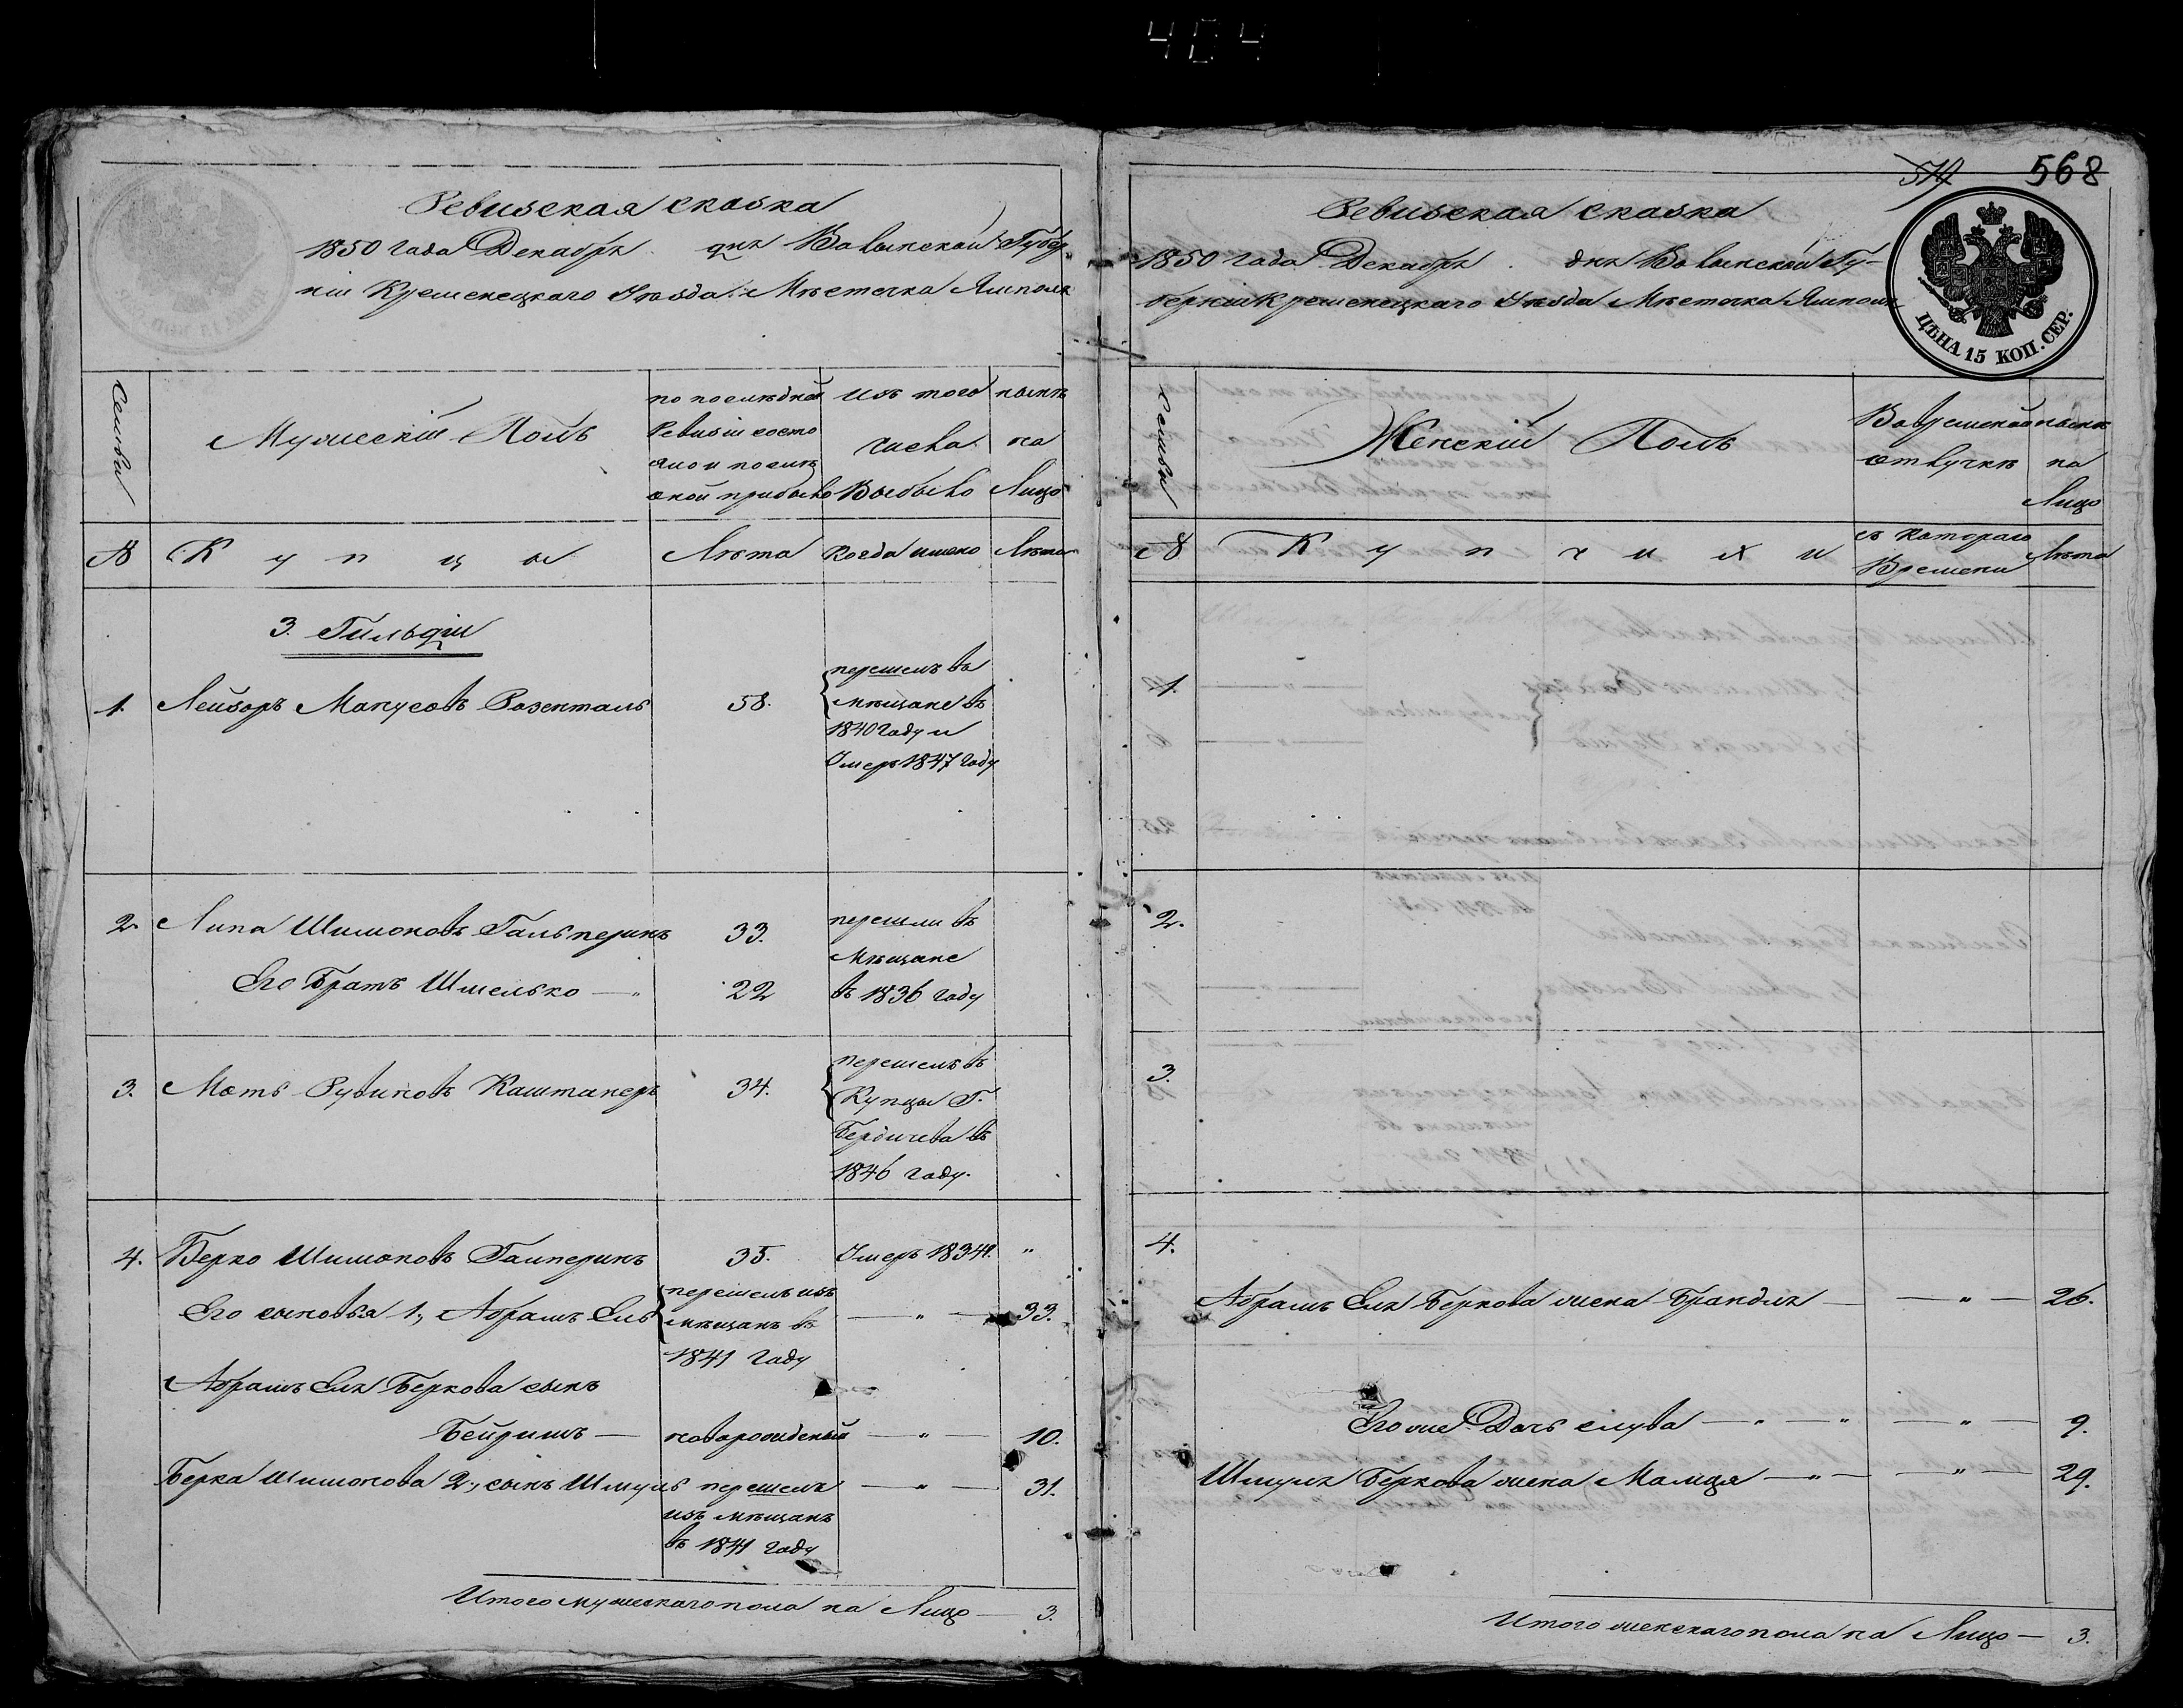 404
Ревизская сказка
1850 года Декабря дня Волынской Губер
ніи Кременецкаго Уѣзда Мѣстечка Ямполя
Семьи
Мужескій Полъ
по послѣдней
Ревизіи состо
яло и послѣ
оной прибыло
Изъ того
числа
Выбыло
нынѣ
на
Лицо
№
Купцы
Лѣта
Когда имено
Лѣта
3. Гильдіи
1. Лейзоръ Манусовъ Розенталь 58.
перешелъ въ
мѣщане въ
1840 году и
Умеръ 1847 году
2. Липа Шимоновъ Гальперинъ 33. перешли въ
Мѣщане
Его Братъ Шмелько — " 22 въ 1836 году
3. Моть Рувиновъ Каштанеръ 34.
перешелъ въ
Купцы Г.
Бердичева въ
1846 году.
4. Берко Шимоновъ Галперинъ 35. Умеръ 1834 "
Его сыновья 1, Абрамъ Ель
перешелъ изъ
мѣщанъ въ
1841 году
— " — 33.
Абрамъ Еля Беркова сынъ
Бейришъ — новорожденый — " — 10.
Берка Шимонова 2, сынъ Шмуль перешелъ — " — 31.
изъ мѣщанъ
въ 1841 году
Итого мужескаго пола на Лицо — 3.
568
Ревизская сказка
1850 года Декабря дня Волынской Гу-
берніи Кременецкаго Уѣзда Мѣстечка Ямполя
ЦѢНА 15 КОП. СЕР.
Семьи
Женскій Полъ
Во временной
отлучкѣ
нынѣ
на
Лицо
№
Купчихи
съ котораго
Времени
Лѣта
1.
2.
3.
4.
Абрамъ Еля Беркова жена Брандля — — " — 26.
Его же Дочь слува — " — " — " — 9.
Шмуля Беркова жена Малця — " — — " — 29.
Итого женскаго пола на Лицо — 3.